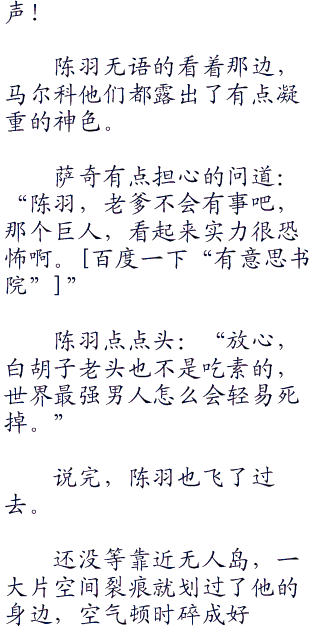 声！
陈羽无语的看着那边，
马尔科他们都露出了有点凝
重的神色。
萨奇有点担心的问道：
“陈羽，老爹不会有事吧，
那个巨人，看起来实力很恐
怖啊。[百度一下“有意思书
院”]”
陈羽点点头：“放心，
白胡子老头也不是吃素的，
世界最强男人怎么会轻易死
掉。”
说完，陈羽也飞了过
去。
还没等靠近无人岛，一
大片空间裂痕就划过了他的
身边，空气顿时碎成好